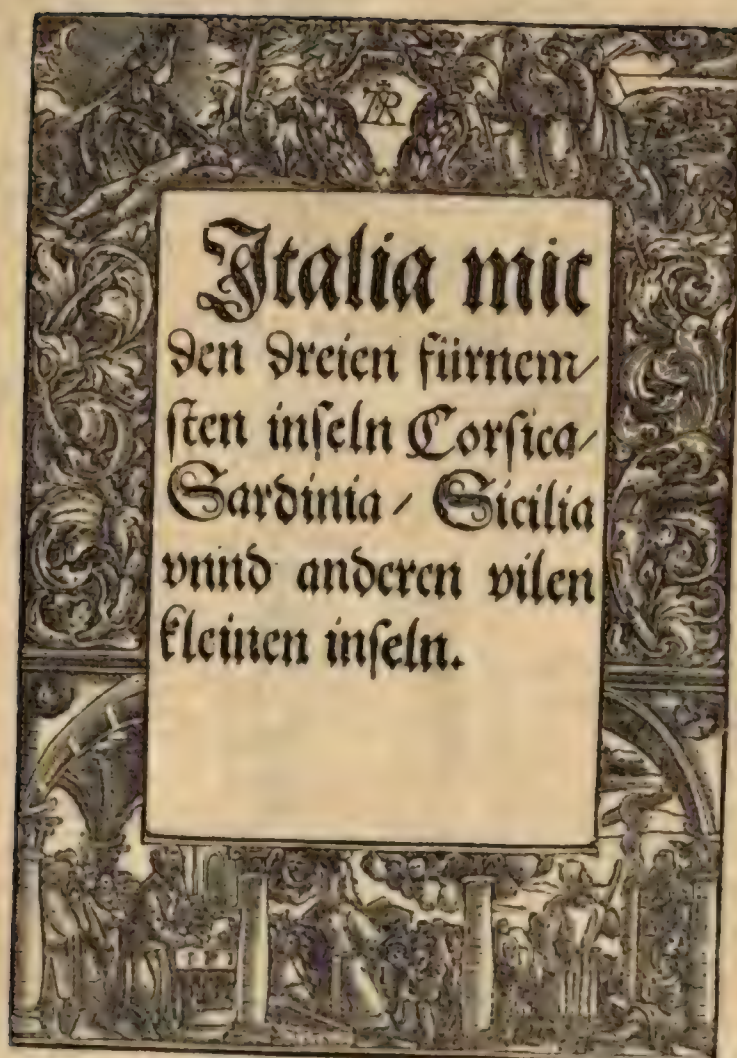 Italia mit
den dreien fürnem/
sten inseln Corsica/
Sardinia / Sicilia
vnnd anderen vilen
kleinen inseln.